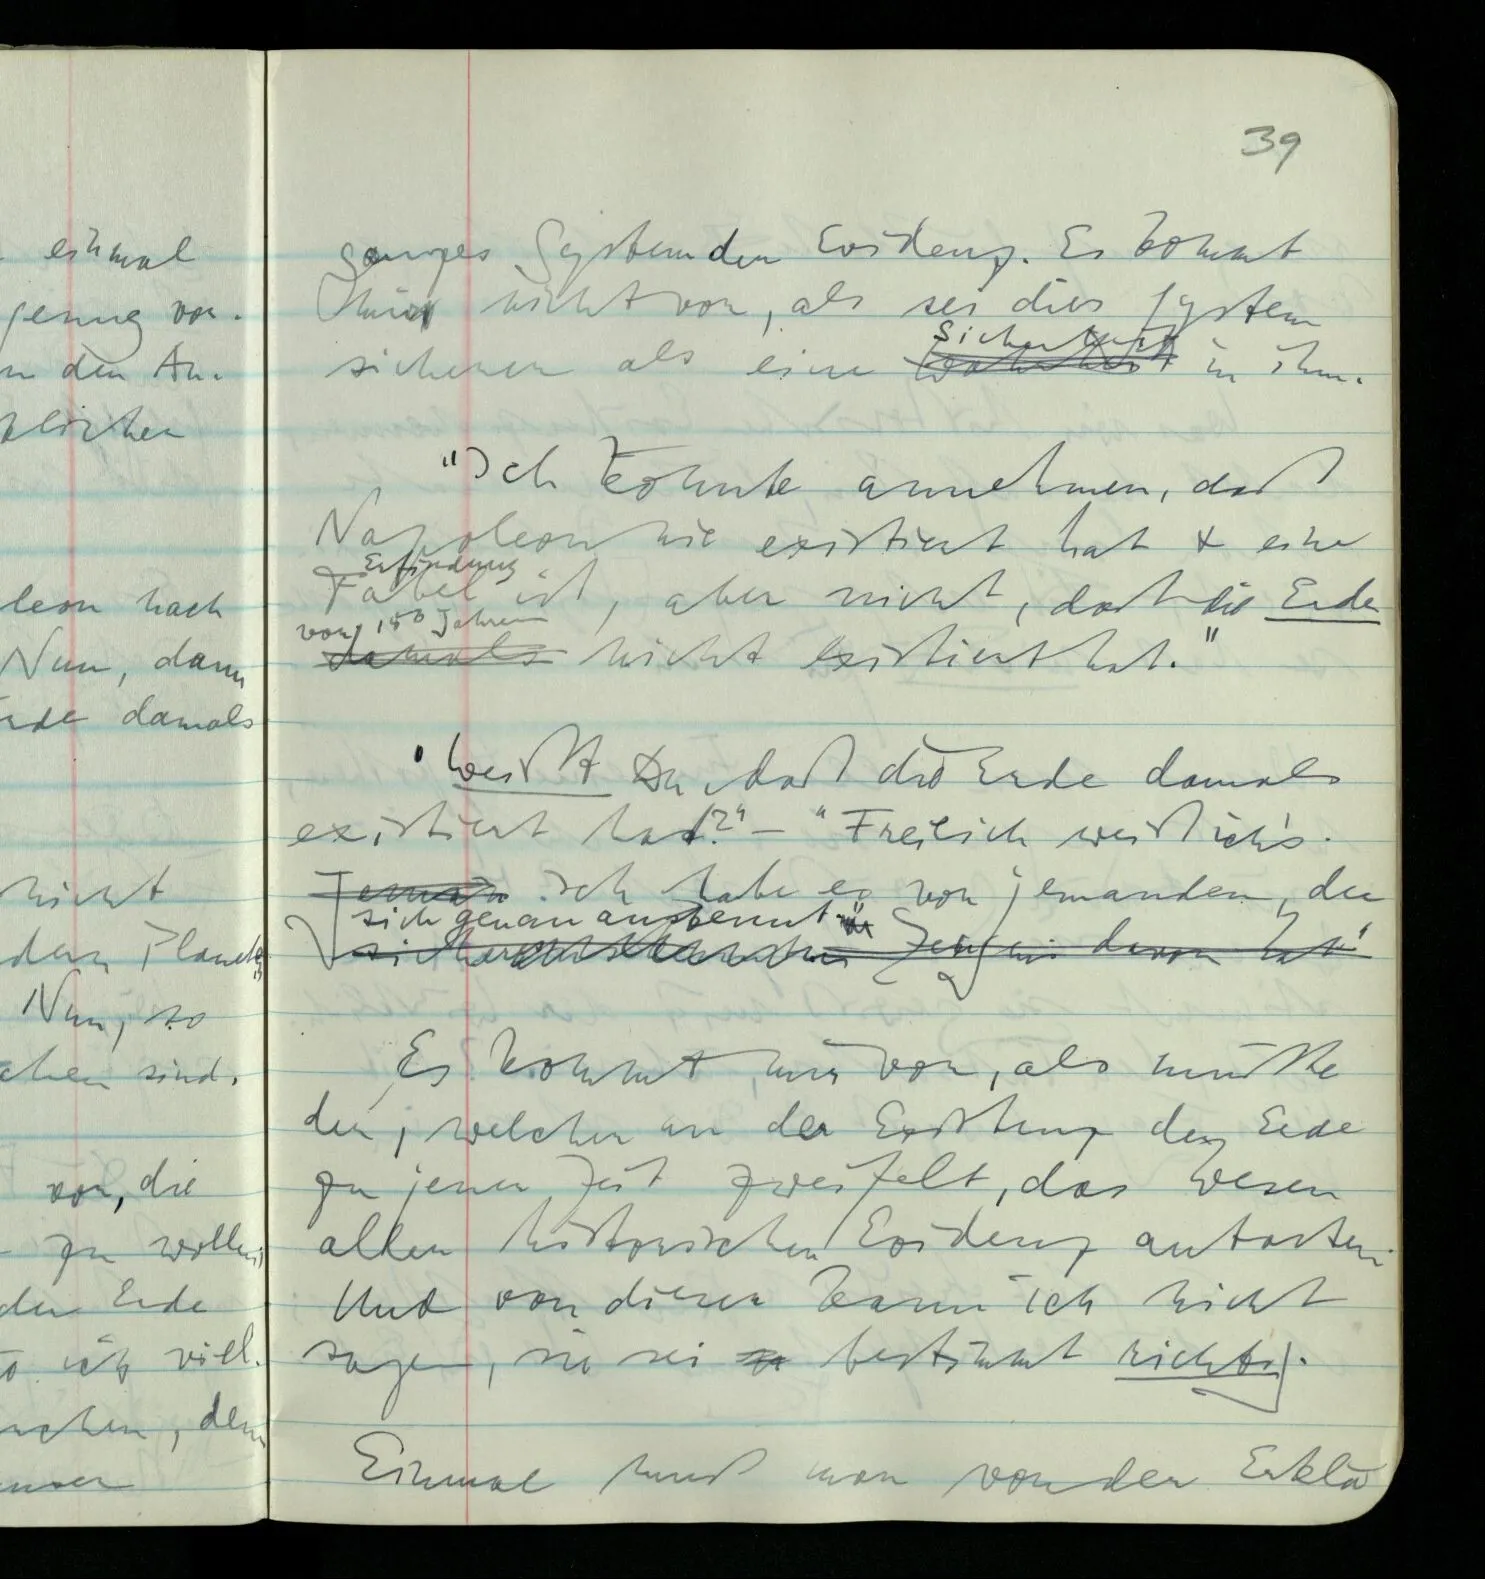 einmal
genug vor-
n den An-
lichen
leon nach
Nun, dann
rde damals
nicht
dem Planeten
Nun, so
ahen sind.
vor, die
zu wollen,
der Erde
ich viel-
machen, dem
unser
39
ganzes System der Evidenz. Es kommt
mir nicht vor, als sei dies System
Sicherheit
sicherer als eine Wahrheit in ihm.
"Ich könnte annehmen, daß
Napoleon nie existiert hat & eine
Erfindung
Fabel ist, aber nicht, daß die Erde
vor 150 Jahren
damals nicht existiert hat."
"Weißt Du, daß die Erde damals
existiert hat?" – "Freilich weiß ich's.
Jeman Ich habe es von jemandem, der
sich genau auskennt."
sicher Zeugnis davon hat"
Es kommt mir vor, als müßte
der, welcher an der Existenz der Erde
zu jener Zeit zweifelt, das Wesen
aller historischen Evidenz antasten.
Und von dieser kann ich nicht
sagen, sie sei bestimmt richtig.
Einmal muß man von der Erklä